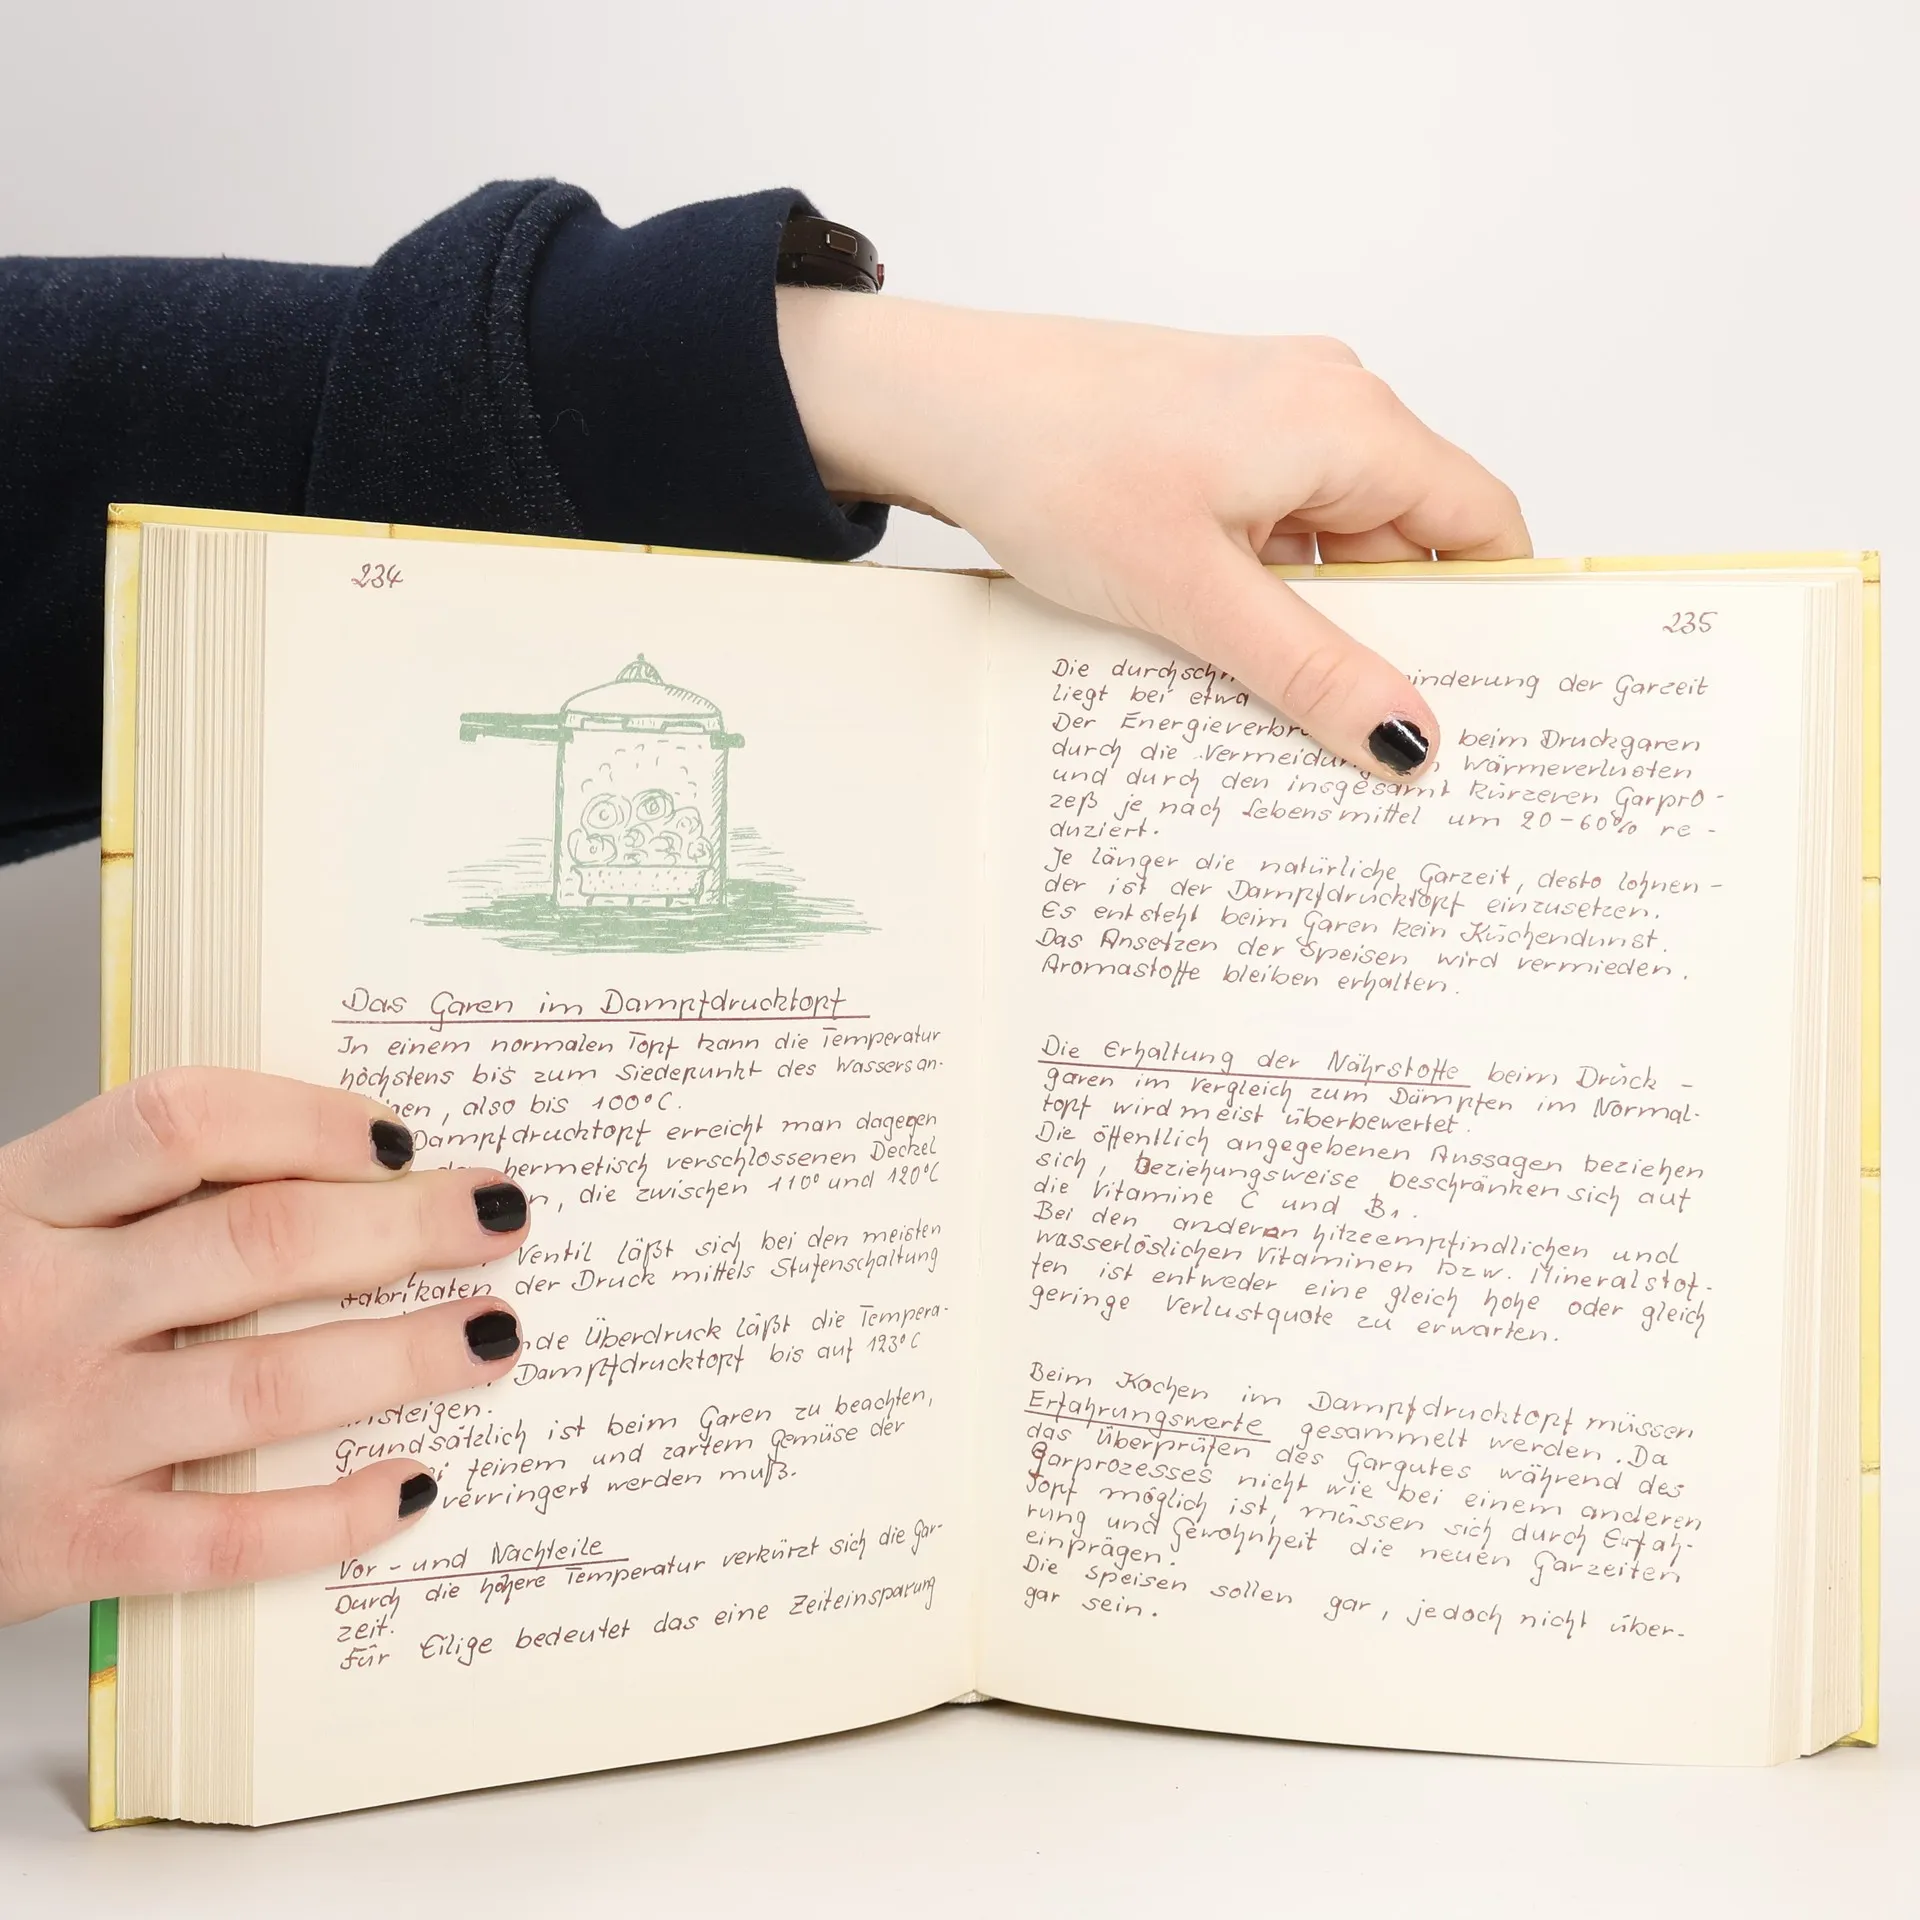 234
Das Garen im Dampfdrucktopf
In einem normalen Topf kann die Temperatur
höchstens bis zum Siedepunkt des Wassers an-
, also bis 100°C.
Dampfdrucktopf erreicht man dagegen
hermetisch verschlossenen Deckel
, die zwischen 110° und 120°C
Ventil läßt sich bei den meisten
Fabrikaten der Druck mittels Stufenschaltung
Überdruck läßt die Tempera-
Dampfdrucktopf bis auf 123°C
Grundsätzlich ist beim Garen zu beachten,
feinem und zartem Gemüse der
verringert werden muß.
Vor- und Nachteile
Durch die höhere Temperatur verkürzt sich die Gar-
zeit.
Für Eilige bedeutet das eine Zeiteinsparung
235
Die der Garzeit
liegt bei etwa
Der beim Druckgaren
durch die Wärmeverlusten
und durch den insgesamt kürzeren Garpro-
zeß je nach Lebensmittel um 20-60% re-
duziert.
Je länger die natürliche Garzeit, desto lohnen-
der ist der Dampfdrucktopf einzusetzen.
Es entsteht beim Garen kein Küchendunst.
Das Ansetzen der Speisen wird vermieden.
Aromastoffe bleiben erhalten.
Die Erhaltung der Nährstoffe beim Druck-
garen im Vergleich zum Dämpfen im Normal-
topf wird meist überbewertet.
Die öffentlich angegebenen Aussagen beziehen
sich, beziehungsweise beschränken sich auf
die Vitamine C und B₁.
Bei den anderen hitzeempfindlichen und
wasserlöslichen Vitaminen bzw. Mineralstof-
fen ist entweder eine gleich hohe oder gleich
geringe Verlustquote zu erwarten.
Beim Kochen im Dampfdrucktopf müssen
Erfahrungswerte gesammelt werden. Da
das Überprüfen des Gargutes während des
Garprozesses nicht wie bei einem anderen
Topf möglich ist, müssen sich durch Erfah-
rung und Gewohnheit die neuen Garzeiten
einprägen.
Die Speisen sollen gar, jedoch nicht über-
gar sein.